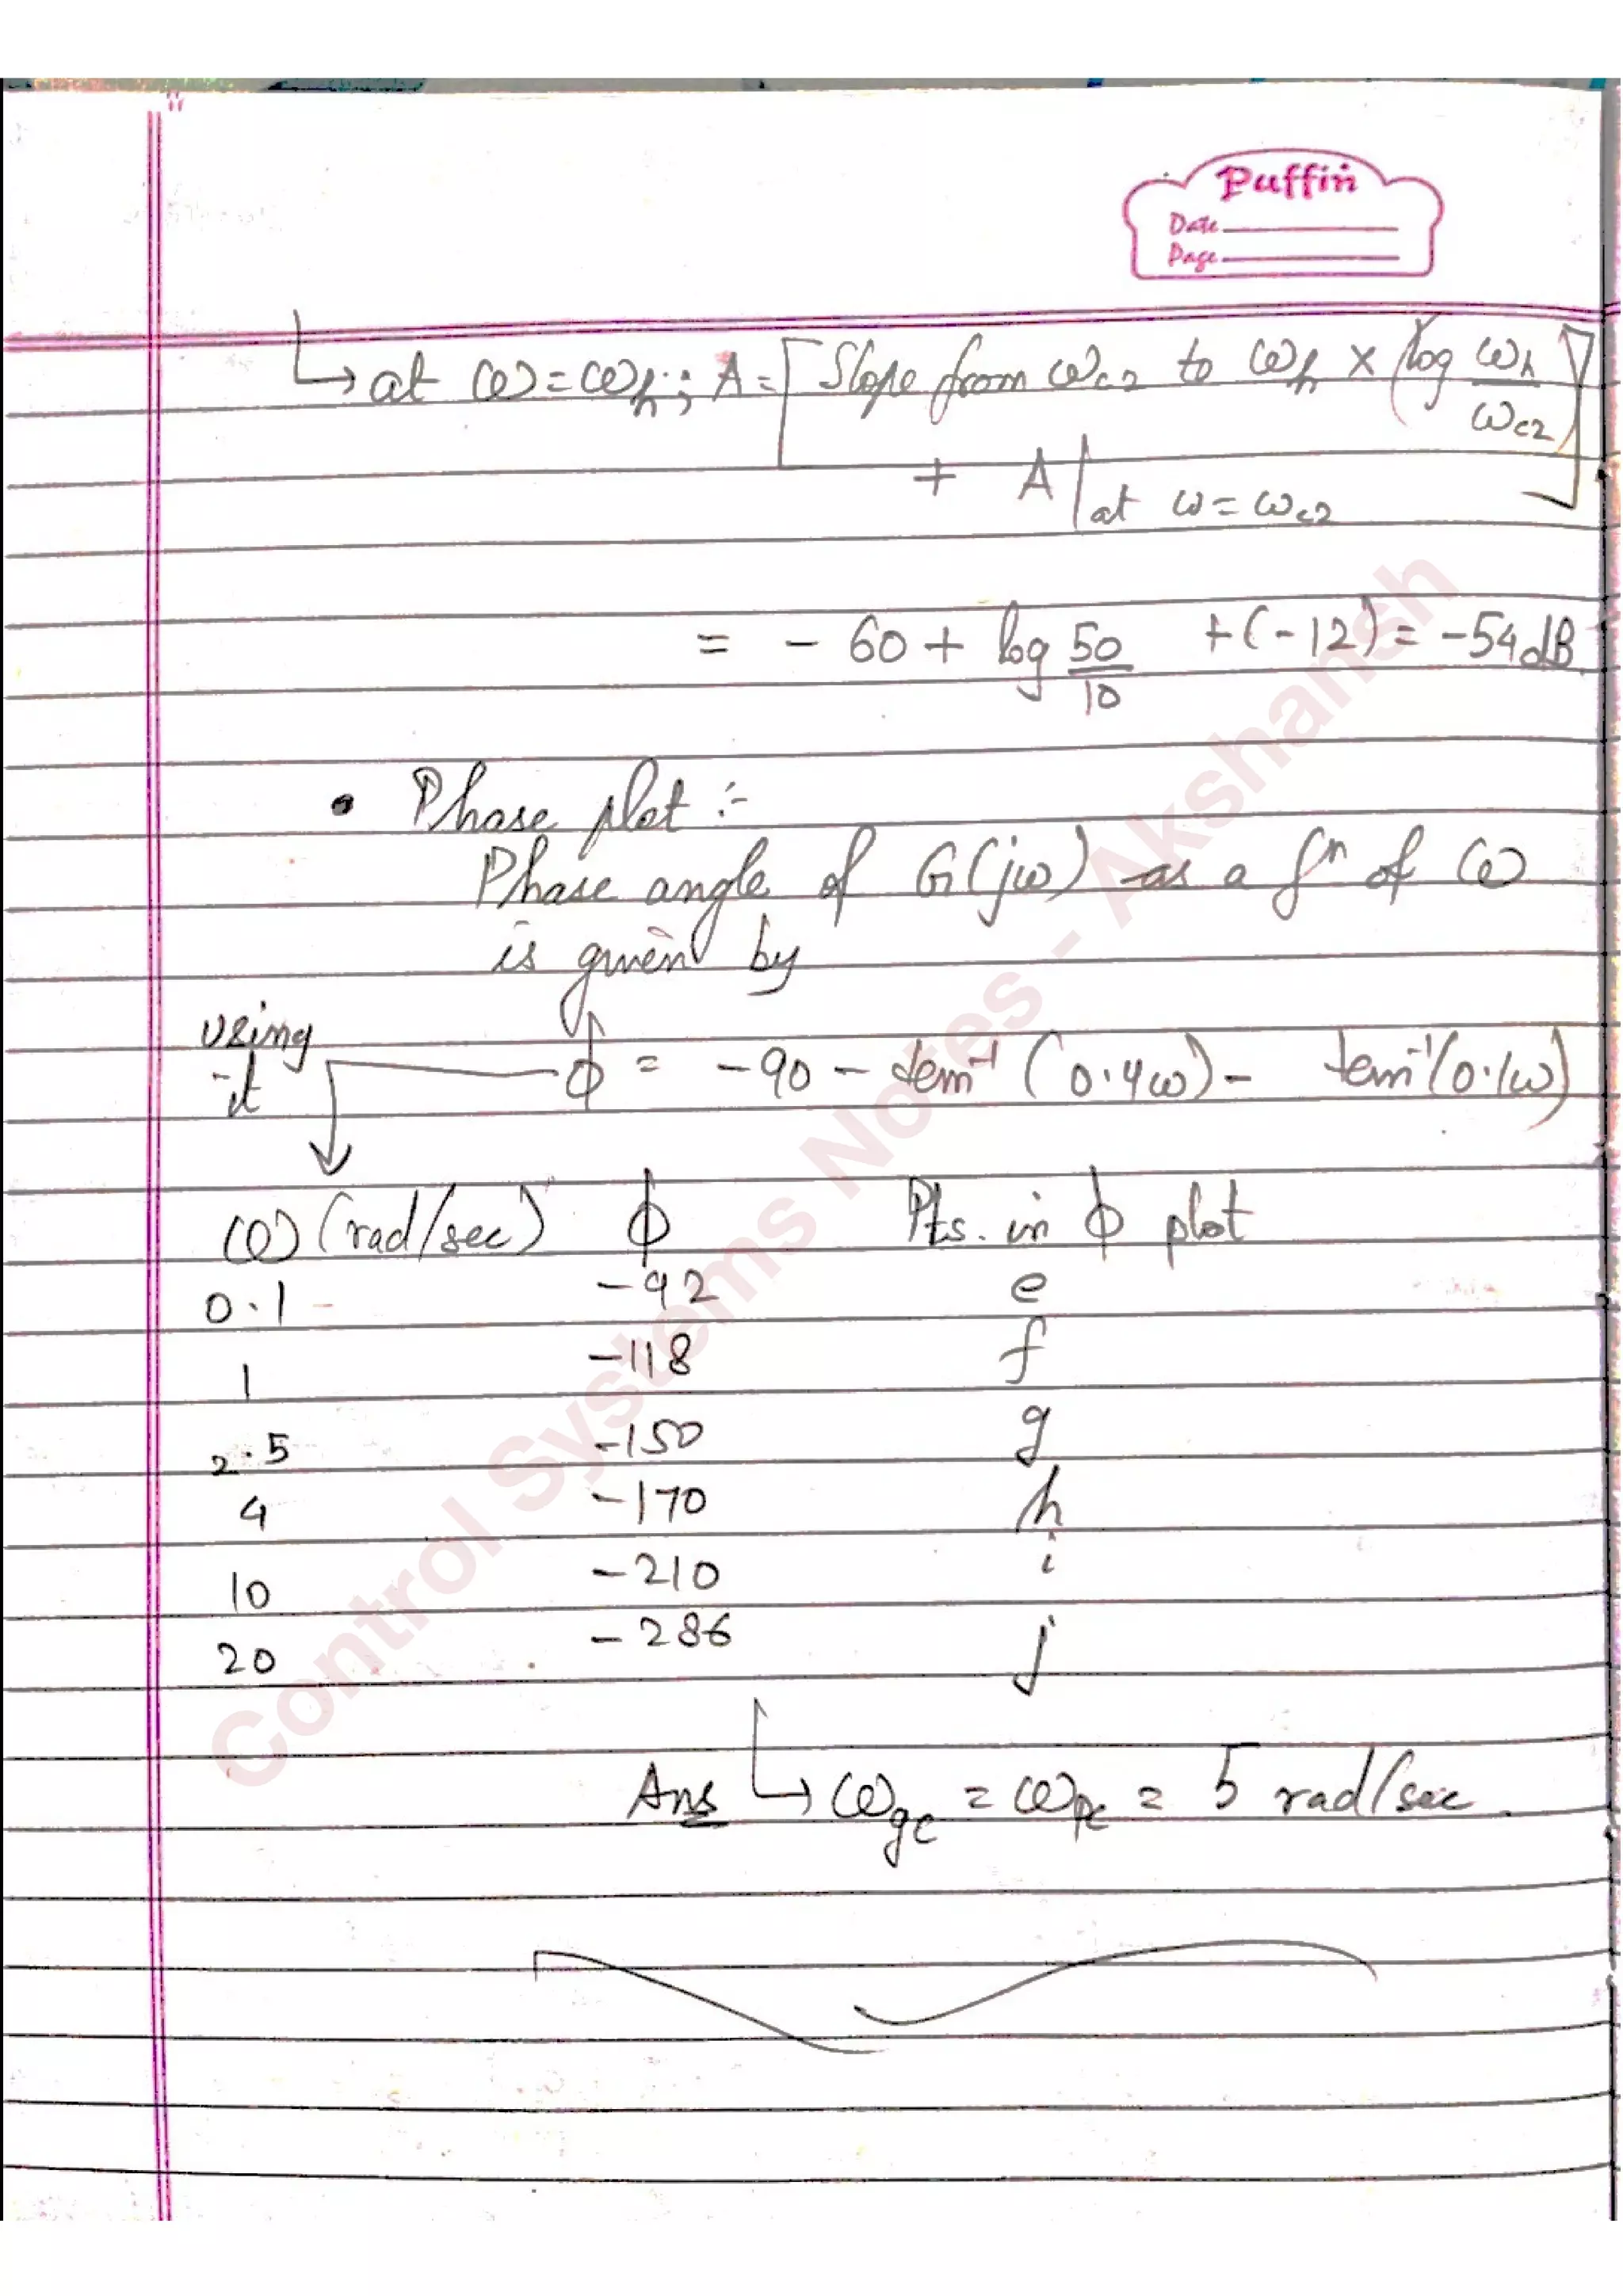 Puffin
Date
Page
↳ at ω = ωh ; A = [Slope from ωc2 to ωh × (log ωh/ωc2)
+ A | at ω = ωc2]
= - 60 + log 50/10 + (-12) = -54 dB
• Phase plot :-
Phase angle of G(jω) as a fn of ω
is given by
using
it
ϕ = -90 - tan⁻¹ (0.4ω) - tan⁻¹(0.1ω)
ω (rad/sec) ϕ Pts. in ϕ plot
0.1 -92 e
1 -118 f
2.5 -150 g
4 -170 h
10 -210 i
20 -286 j
Ans ↳ ωgc = ωpc = 5 rad/sec.
Control Systems Notes - Akshansh